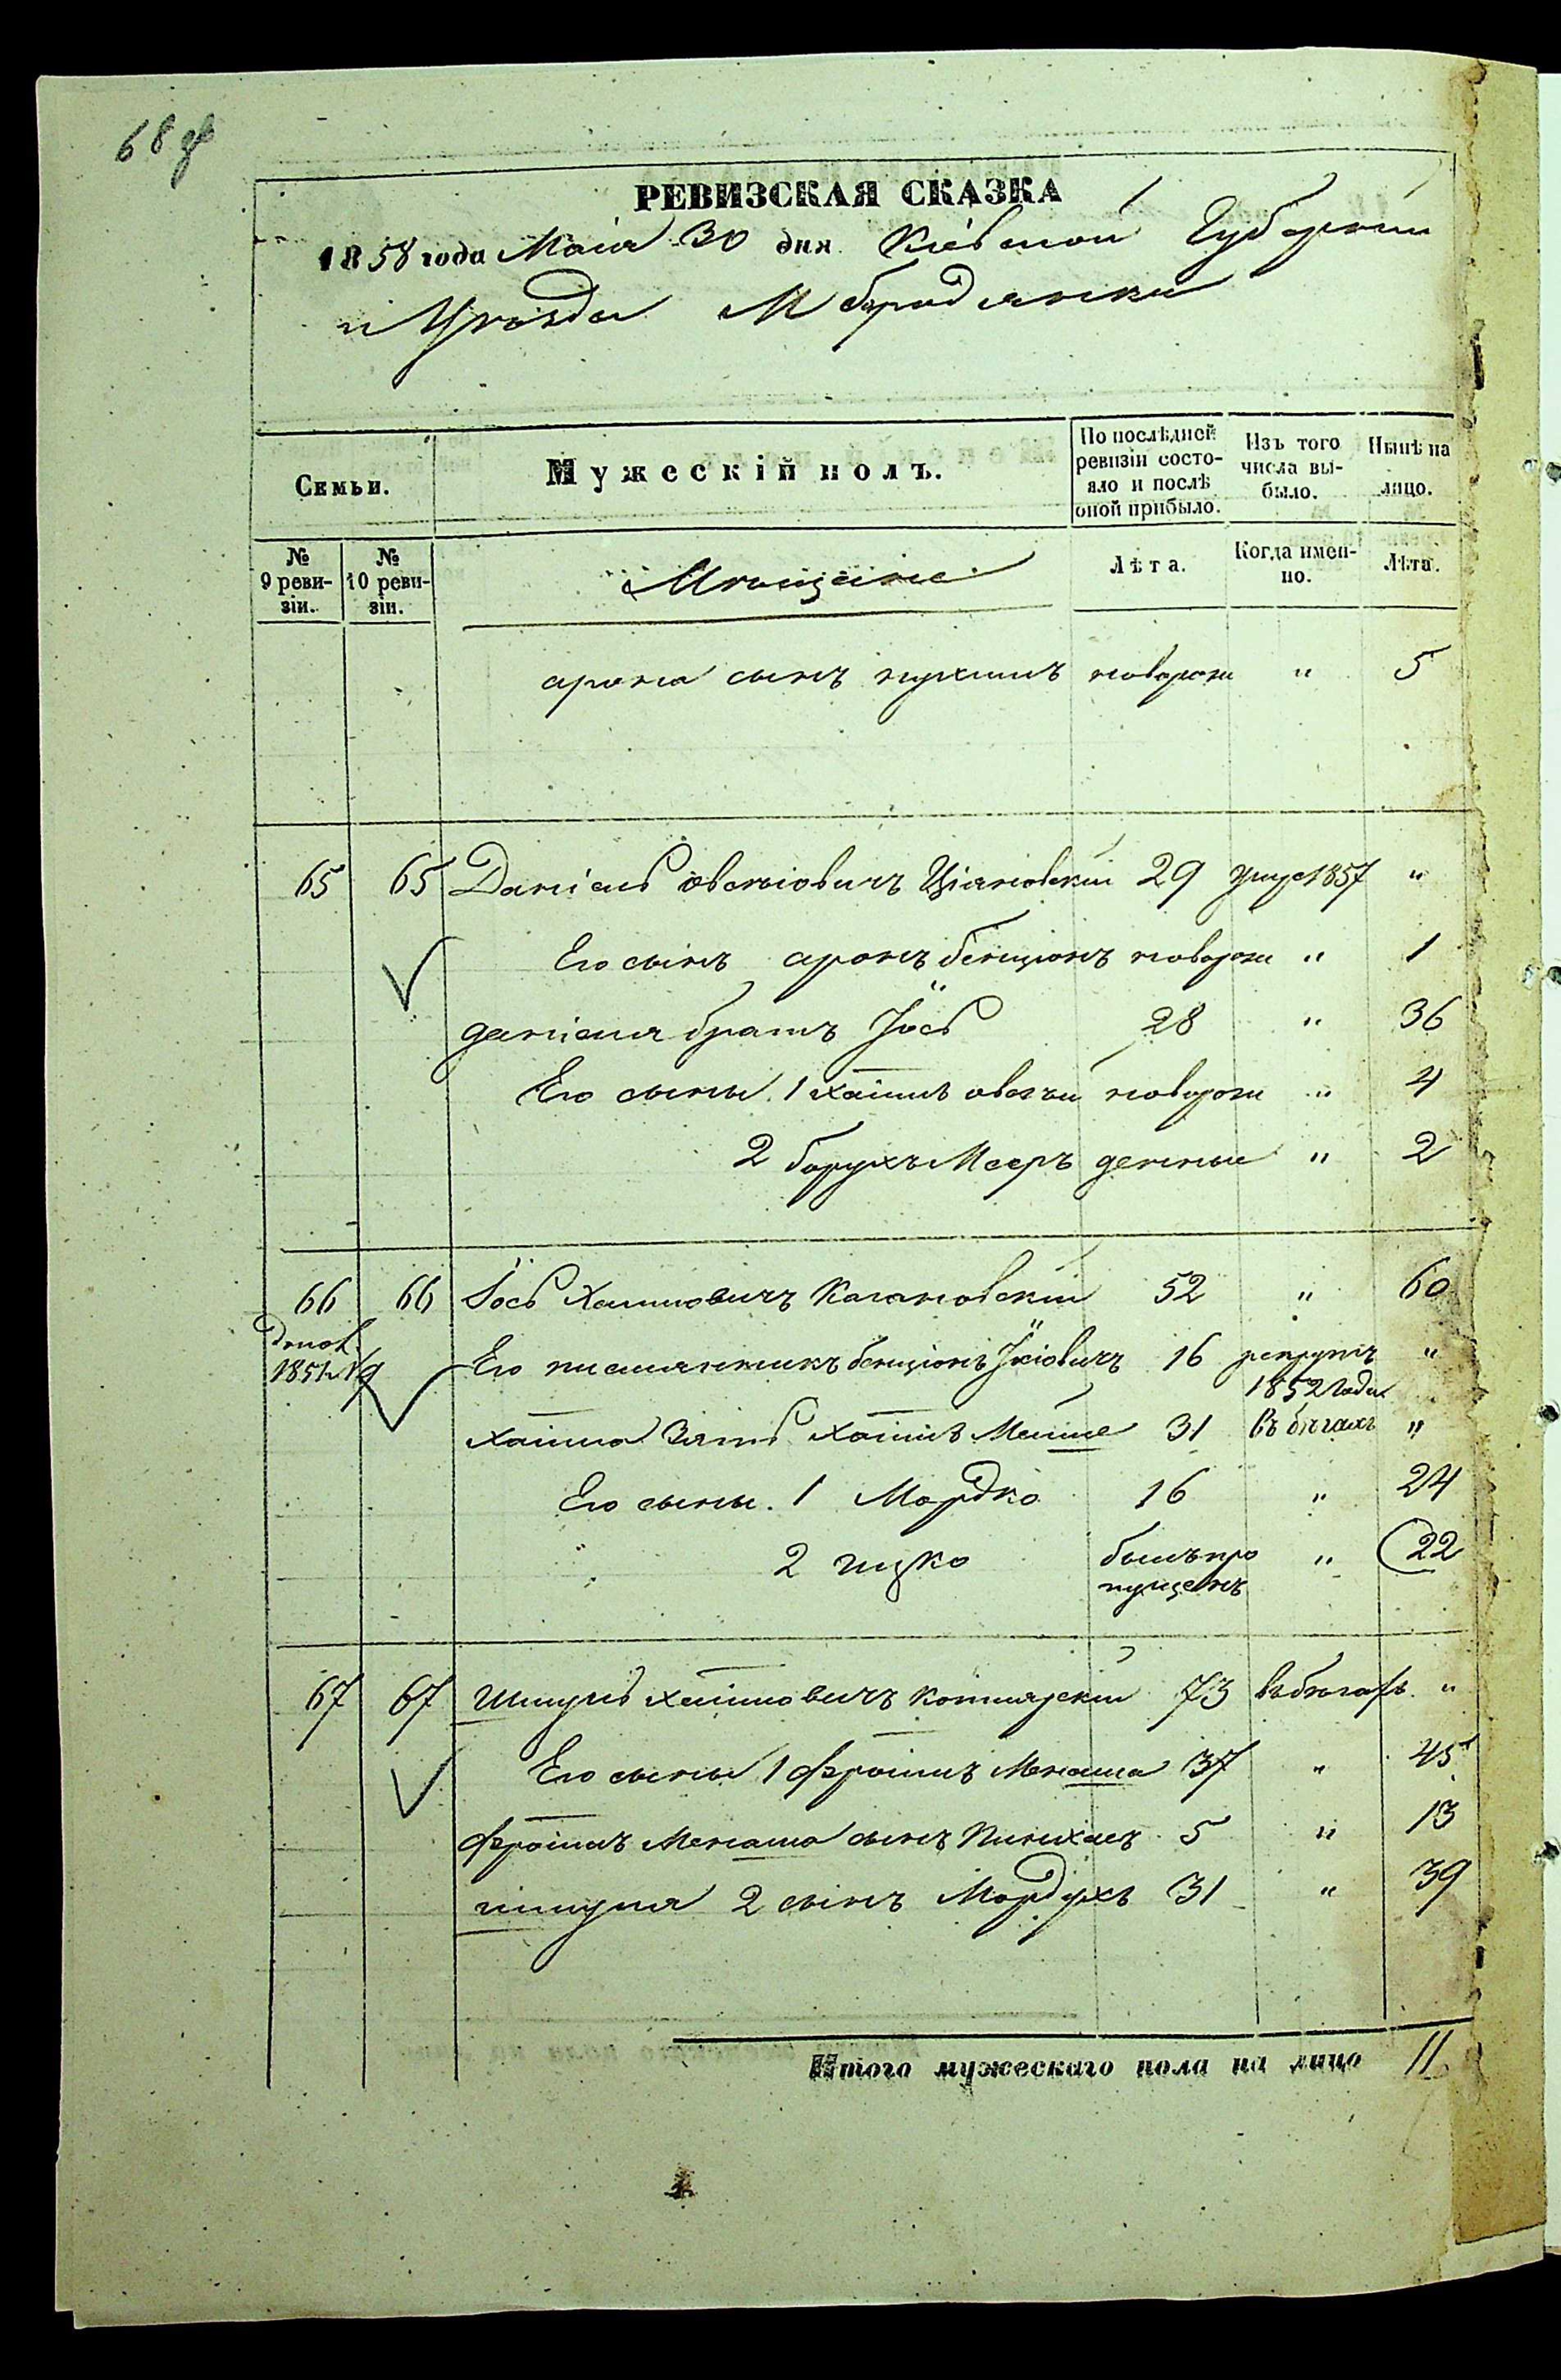 68
РЕВИЗСКАЯ СКАЗКА
1858 года Маія 30 дня Кіевской Губерніи
и Уѣзда М Бородянки
Семьи.
Мужескій полъ.
По послѣдней ревизіи состояло и послѣ оной прибыло.
Изъ того числа выбыло.
Нынѣ на лицо.
№ 9 ревизіи.
№ 10 ревизіи.
Мѣщане
Лѣта.
Когда именно.
Лѣта.
арона сынъ нухимъ новорож " 5
65 65 Даніель овсѣіовичъ Ціяновскій 29 умре 1857 "
Его сынъ аронъ бенціонъ новорож " 1
даніеля братъ Іось 28 " 36
Его сыны 1 хаимъ овсѣй новорож " 4
2 борухъ Мееръ денные " 2
66 66 Іось Хаимовичъ Кагановскій 52 " 60
1851 №9 Его племянникъ бенціонъ 16 рекрутъ "
1852 года
хаима зять хаимъ 31 въ бѣгахъ "
Его сыны. 1 Мордко 16 " 24
2 ицко былъ про " 22
пущенъ
67 67 Шмуль хаимовичъ Котлярскій 73 въ бѣгахъ "
Его сыны 1 фроимъ Менаша 37 " 45
фроима Менаша сынъ Пинхасъ 5 " 13
шмуля 2 сынъ Мордухъ 31 " 39
Итого мужескаго пола на лицо 11